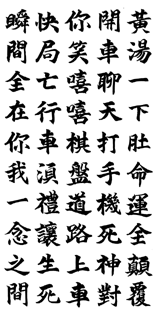 黃湯一下肚命運全顛覆
開車聊天打手機死神對
你笑嘻嘻棋盤道路上車
快局亡行車湏禮讓生死
瞬間全在你我一念之間